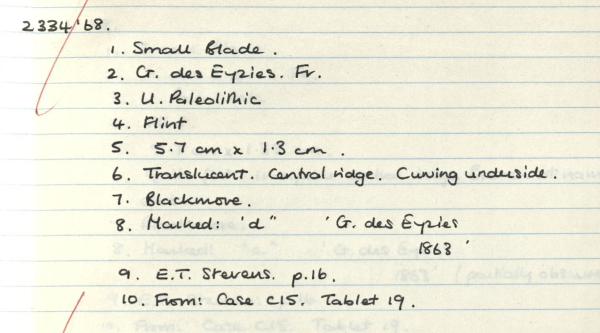 2334'68.
1. Small Blade.
2. Gr. des Eyzies. Fr.
3. U. Paleolithic
4. Flint
5. 5.7 cm x 1.3 cm.
6. Translucent. Central ridge. Curving underside.
7. Blackmore.
8. Marked: 'd" 'Gr. des Eyzies
1863'
9. E.T. Stevens. p.16.
10. From: Case C15. Tablet 19.